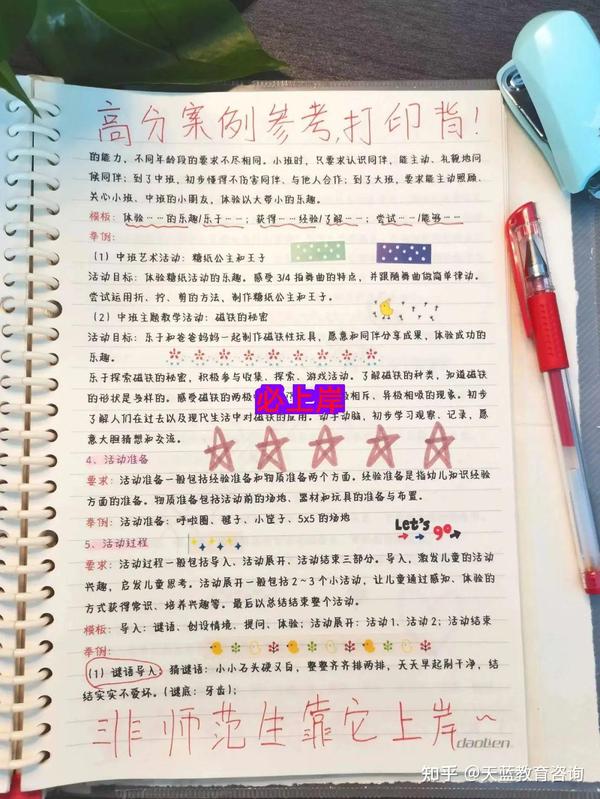 高分案例参考,打印背!
的能力，不同年龄段的要求不尽相同。小班时，只要求认识同伴，能主动、礼貌地问
候同伴；到了中班，初步懂得不伤害同伴、与他人合作；到了大班，要求能主动照顾、
关心小班、中班的小朋友，体验以大带小的乐趣。
模板：体验……的乐趣/乐于……；获得……经验/了解……；尝试……/能够……
举例：
（1）中班艺术活动：糖纸公主和王子
活动目标：体验糖纸活动的乐趣。感受 3/4 拍舞曲的特点，并跟随舞曲做简单律动。
尝试运用折、拧、剪的方法，制作糖纸公主和王子。
（2）中班主题教学活动：磁铁的秘密
活动目标：乐于和爸爸妈妈一起制作磁铁性玩具，愿意和同伴分享成果，体验成功的
乐趣。
乐于探索磁铁的秘密，积极参与收集、探索、游戏活动。了解磁铁的种类，知道磁铁
的形状是多样的。感受磁铁的两极 相斥、异极相吸的现象。初步
必上岸
了解人们在过去以及现代生活中对磁铁的应用。动手动脑，初步学习观察、记录，愿
意大胆猜想和交流。
4、活动准备
要求：活动准备一般包括经验准备和物质准备两个方面。经验准备是指幼儿知识经验
方面的准备。物质准备包括活动前的场地、器材和玩具的准备与布置。
举例：活动准备：呼啦圈、毽子、小筐子、5x5 的场地
Let's go
5、活动过程
要求：活动过程一般包括导入、活动展开、活动结束三部分。导入，激发儿童的活动
兴趣，启发儿童思考。活动展开一般包括 2～3 个小活动，让儿童通过感知、体验的
方式获得常识、培养兴趣等。最后以总结结束整个活动。
模板：导入：谜语、创设情境、提问、体验；活动展开：活动 1、活动 2；活动结束
举例：
（1）谜语导入：猜谜语：小小石头硬又白，整整齐齐排两排，天天早起刷干净，结
结实实不爱坏。（谜底：牙齿）；
非师范生靠它上岸~
daolien
知乎 @天蓝教育咨询